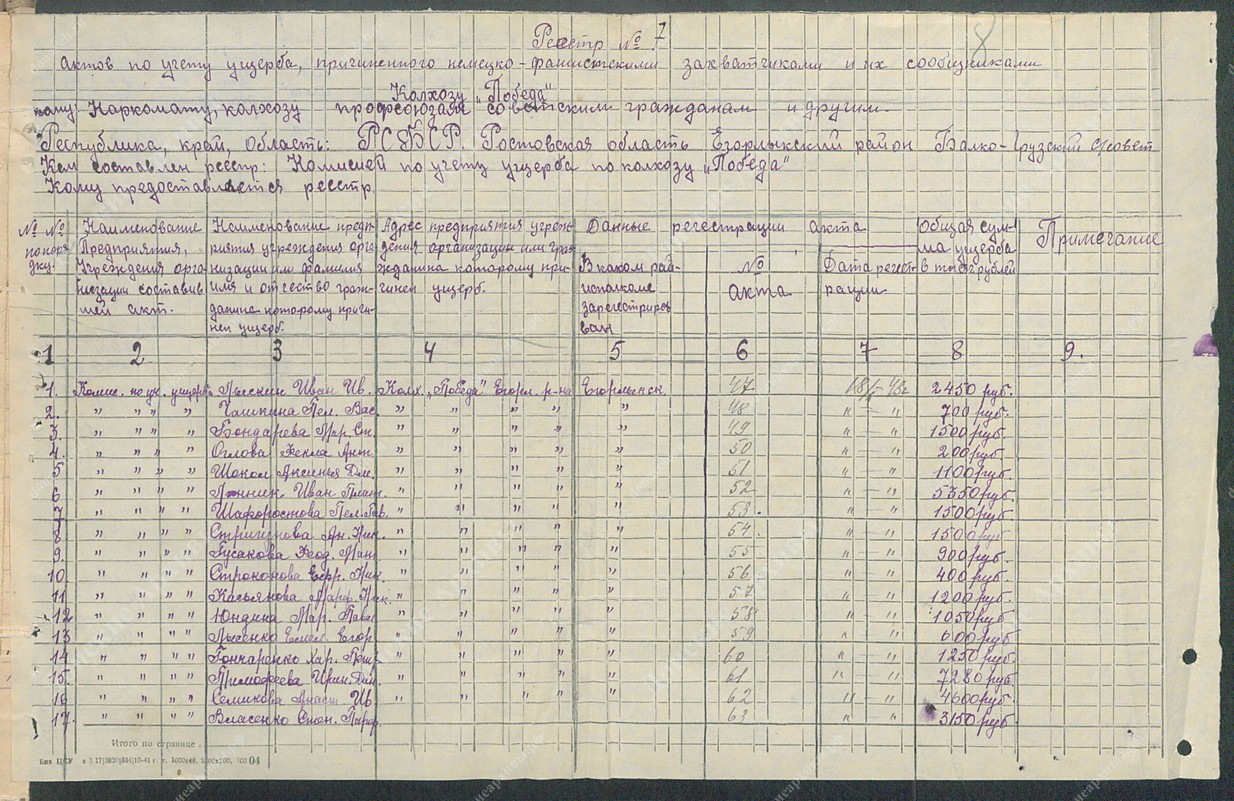 Реестр № 7
8
Актов по учету ущерба, причиненного немецко-фашистскими захватчиками и их сообщниками
Колхозу „Победа"
кому: Наркомату, колхозу профсоюзам советским гражданам и другим.
Республика, край, Область: РСФСР. Ростовская область Егорлыкский район Балко-Грузский С/совет
Кем составлен реестр: Комиссией по учету ущерба по колхозу „Победа"
Кому предоставляется реестр
№ № по поряд Наименование Предприятия, Учреждения организации составившей акт. Наименование предприятия учреждения организации или фамилия имя и отчество гражданина которому причинен ущерб. Адрес предприятия учреждения организации или гражданина которому причинен ущерб. Данные регестрации Акта Общая сумма ущерба в тысяч рублей Примечание
В каком райисполкоме зарегестрирован № акта Дата регестрации
1 2 3 4 5 6 7 8 9.
1. Комис. по уч. ущерба Иван Ив. Колх. „Победа" Егорл. р-на Егорлыкск. 47 2450 руб.
2. " " " " Чашкина Пел. Вас. " " " " " 48 " — " 700 руб.
3. " " " " Бондарева Мар. Ст. " " " " " 49 " — " 1500 руб
4. " " " " Фекла Ант. " " " " " 50 " — " 200 руб
5 " " " " Шокол Аксинья Дм. " " " " " 51 " — " 1100 руб.
6 " " " " Иван Плат. " " " " " 52 " — " 5350 руб.
7 " " " " Шафоростова Пел. " " " " " 53. " — " 1500 руб
8 " " " " Стригунова Ан. Ник. " " " " 54. " — " 1500 руб
9. " " " " Гусакова Фед. " " " " " 55 " — " 900 руб.
10 " " " " Строконова Ефр. Ник. " " " " " 56 " — " 400 руб.
11 " " " " Касьянова Марф. " " " " " 57 " — " 1200 руб.
12 " " " " Юндина Мар. Павл " " " " " 58 " — " 1050 руб
13 " " " " Лысенко Емел. Егор. " " " " " 59 " — " 600 руб
14 " " " " Гончаренко Хар. Григ. " " " " " 60 " — " 1250 руб.
15. " " " " Тимофеева Ирин. " " " " " 61 " — " 7280 руб.
16 " " " " Семикова Анаст. Ив. " " " " " 62 " — " 4600 руб.
17. " " " " Власенко Степ. 63 " — " 3150 руб
Итого по странице.
04